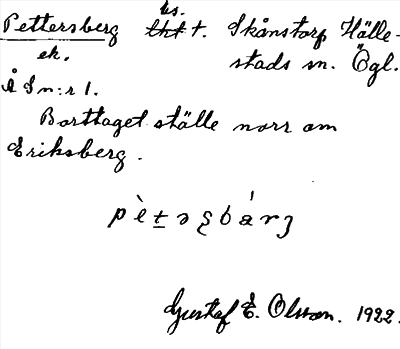 Pettersberg bs. t. Skånstorp Hälle-
ek. stads sn. Ögl.
Å Sn:r 1.
Borttaget ställe norr om
Eriksberg.
Gustaf E. Olsson. 1922.